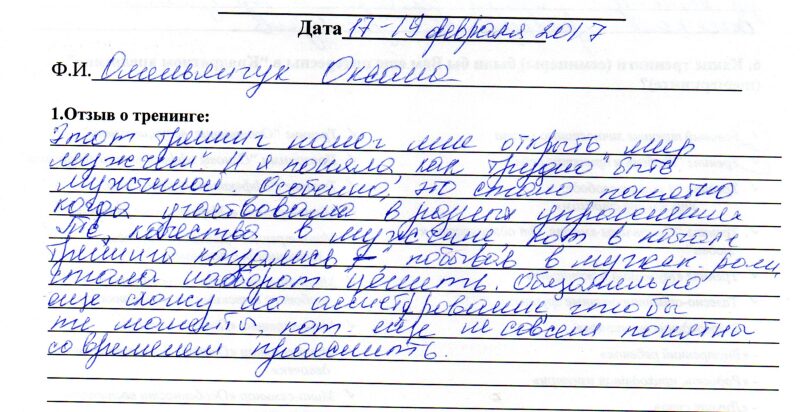 Дата 17-19 февраля 2017
Ф.И. Омельянчук Оксана
1.Отзыв о тренинге:
Этот тренинг помог мне открыть мир
мужчин". И я поняла, как трудно "быть
мужчиной". Особенно, это стало понятно
когда участвовала в разных упражнениях
Те качества в мужчине, кот в начале
тренинга казались "–" побывав в мужск. роли,
стала наоборот ценить. Обязательно
еще схожу на ассистирование, чтобы
те моменты, кот. еще не совсем понятны
со временем прояснить.